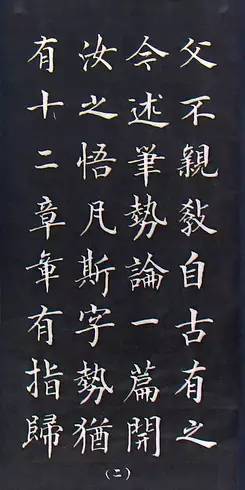 父不親教自古有之
今述筆勢論一篇開
汝之悟凡斯字勢猶
有十二章章有指歸
（二）